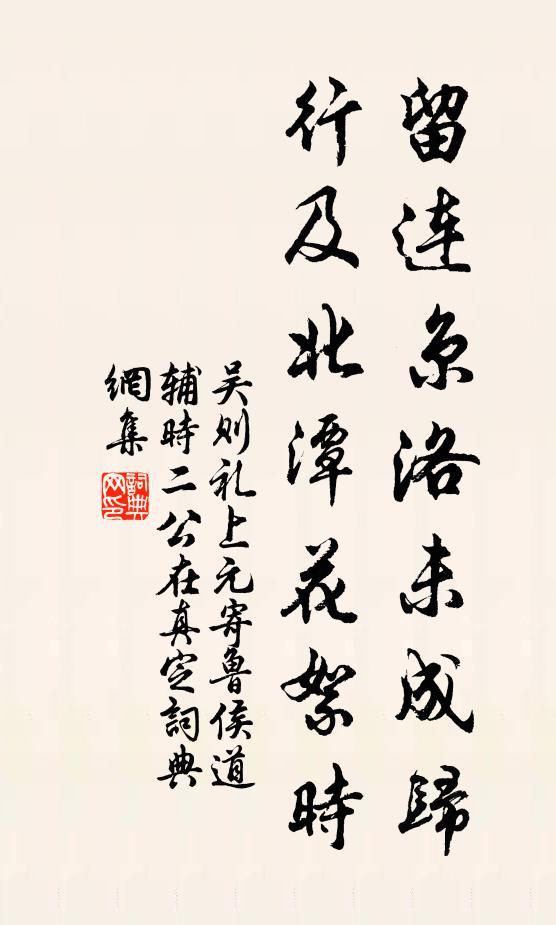 留連京洛未成歸
行及北潭花絮時
吴则礼上元寄鲁侯道
辅時二公在真定詞典
網集
詞典
网印